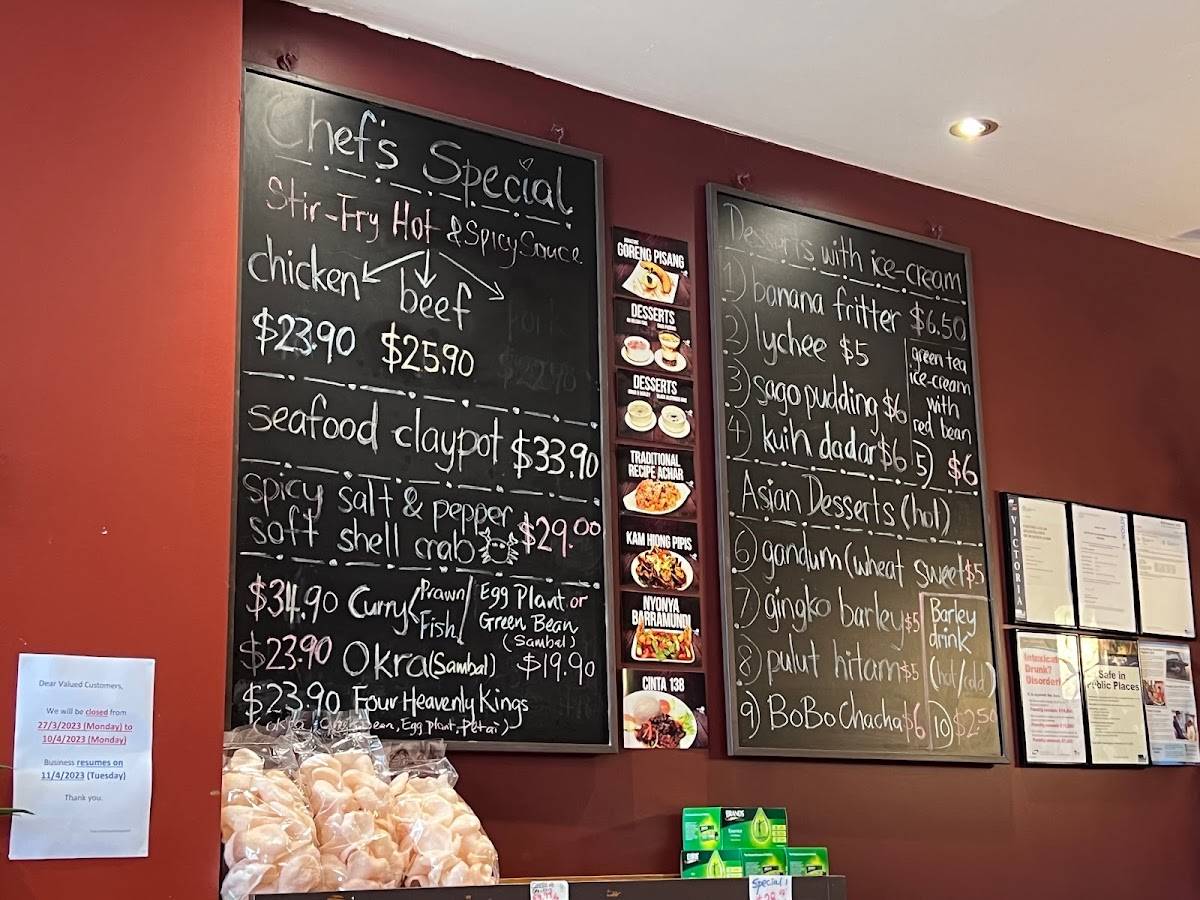 Chef's Special
Stir-Fry Hot & Spicy Sauce
chicken beef
$23.90 $25.90
seafood claypot $33.90
spicy salt & pepper
soft shell crab $29.00
$34.90 Curry Prawn / Egg Plant or
Fish / Green Bean
(Sambal)
$23.90 Okra (Sambal) $19.90
$23.90 Four Heavenly Kings
Bean, Egg Plant, Petai)
GORENG PISANG
DESSERTS
DESSERTS
TRADITIONAL
RECIPE ACHAR
KAM HIONG PIPIS
NYONYA
BARRAMUNDI
CINTA 138
Desserts with ice-cream
1) banana fritter $6.50
2) lychee $5
3) sago pudding $6
4) kuih dadar $6
5) green tea
ice-cream
with
red bean
$6
Asian Desserts (hot)
6) gandum (wheat sweet $5
7) gingko barley $5
8) pulut hitam $5
9) BoBo Chacha $6
Barley
drink
(hot/cold)
10) $2.50
Dear Valued Customers,
We will be closed from
27/3/2023 (Monday) to
10/4/2023 (Monday)
Business resumes on
11/4/2023 (Tuesday)
Thank you.
VICTORIA
Drunk?
Safe in
Public Places
BRAND'S
Special